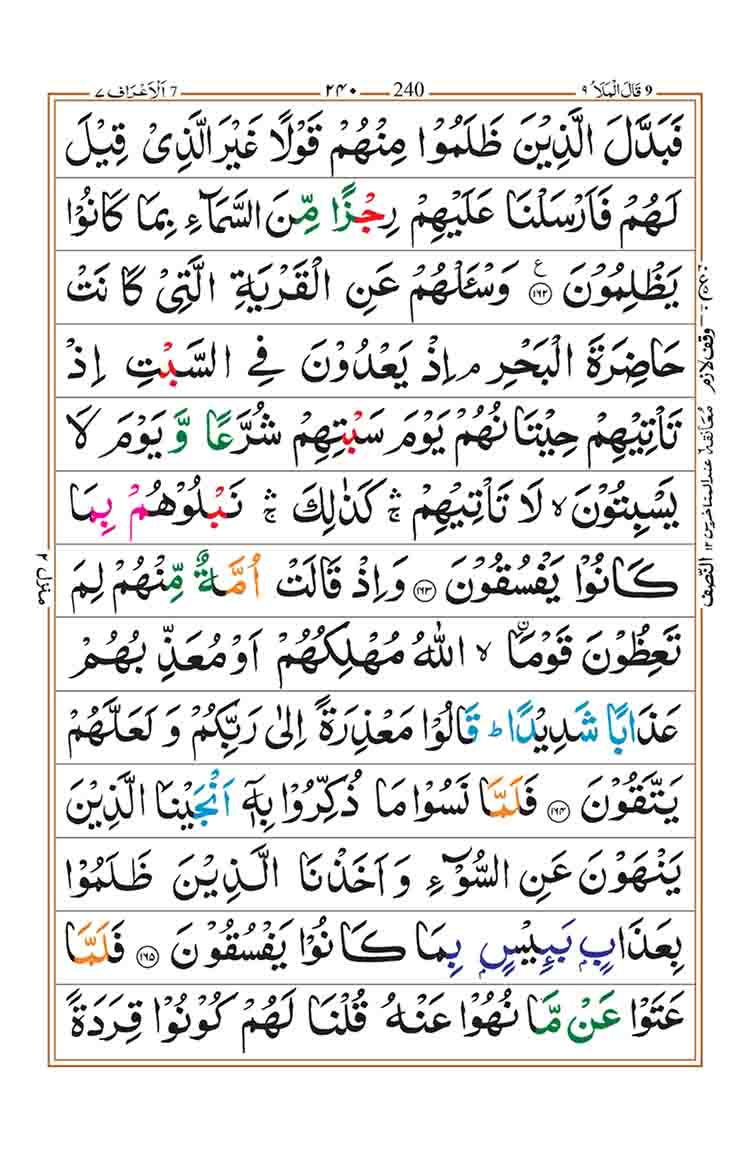 9 قَالَ الْمَلَاُ ۹ 240 ۲۴۰ 7 اَلْاَعْرَاف ۷
فَبَدَّلَ الَّذِيْنَ ظَلَمُوْا مِنْهُمْ قَوْلًا غَيْرَ الَّذِىْ قِيْلَ
لَهُمْ فَاَرْسَلْنَا عَلَيْهِمْ رِجْزًا مِّنَ السَّمَآءِ بِمَا كَانُوْا
يَظْلِمُوْنَ ۱۶۲ ع وَسْئَلْهُمْ عَنِ الْقَرْيَةِ الَّتِىْ كَانَتْ
حَاضِرَةَ الْبَحْرِ م اِذْ يَعْدُوْنَ فِى السَّبْتِ اِذْ
تَاْتِيْهِمْ حِيْتَانُهُمْ يَوْمَ سَبْتِهِمْ شُرَّعًا وَّ يَوْمَ لَا
يَسْبِتُوْنَ ۙ لَا تَاْتِيْهِمْ ۛ كَذٰلِكَ ۛ نَبْلُوْهُمْ بِمَا
كَانُوْا يَفْسُقُوْنَ ۱۶۳ وَاِذْ قَالَتْ اُمَّةٌ مِّنْهُمْ لِمَ
تَعِظُوْنَ قَوْمَاۨ ۙ اللّٰهُ مُهْلِكُهُمْ اَوْ مُعَذِّبُهُمْ
عَذَابًا شَدِيْدًا ؕ قَالُوْا مَعْذِرَةً اِلٰى رَبِّكُمْ وَ لَعَلَّهُمْ
يَتَّقُوْنَ ۱۶۴ فَلَمَّا نَسُوْا مَا ذُكِّرُوْا بِهٖۤ اَنْجَيْنَا الَّذِيْنَ
يَنْهَوْنَ عَنِ السُّوْٓءِ وَ اَخَذْنَا الَّذِيْنَ ظَلَمُوْا
بِعَذَابٍۭ بَـِٔيْسٍۭ بِمَا كَانُوْا يَفْسُقُوْنَ ۱۶۵ فَلَمَّا
عَتَوْا عَنْ مَّا نُهُوْا عَنْهُ قُلْنَا لَهُمْ كُوْنُوْا قِرَدَةً
وقف لازم
معانقة عند المتاخرين ۱۲
النصف
منزل ۲